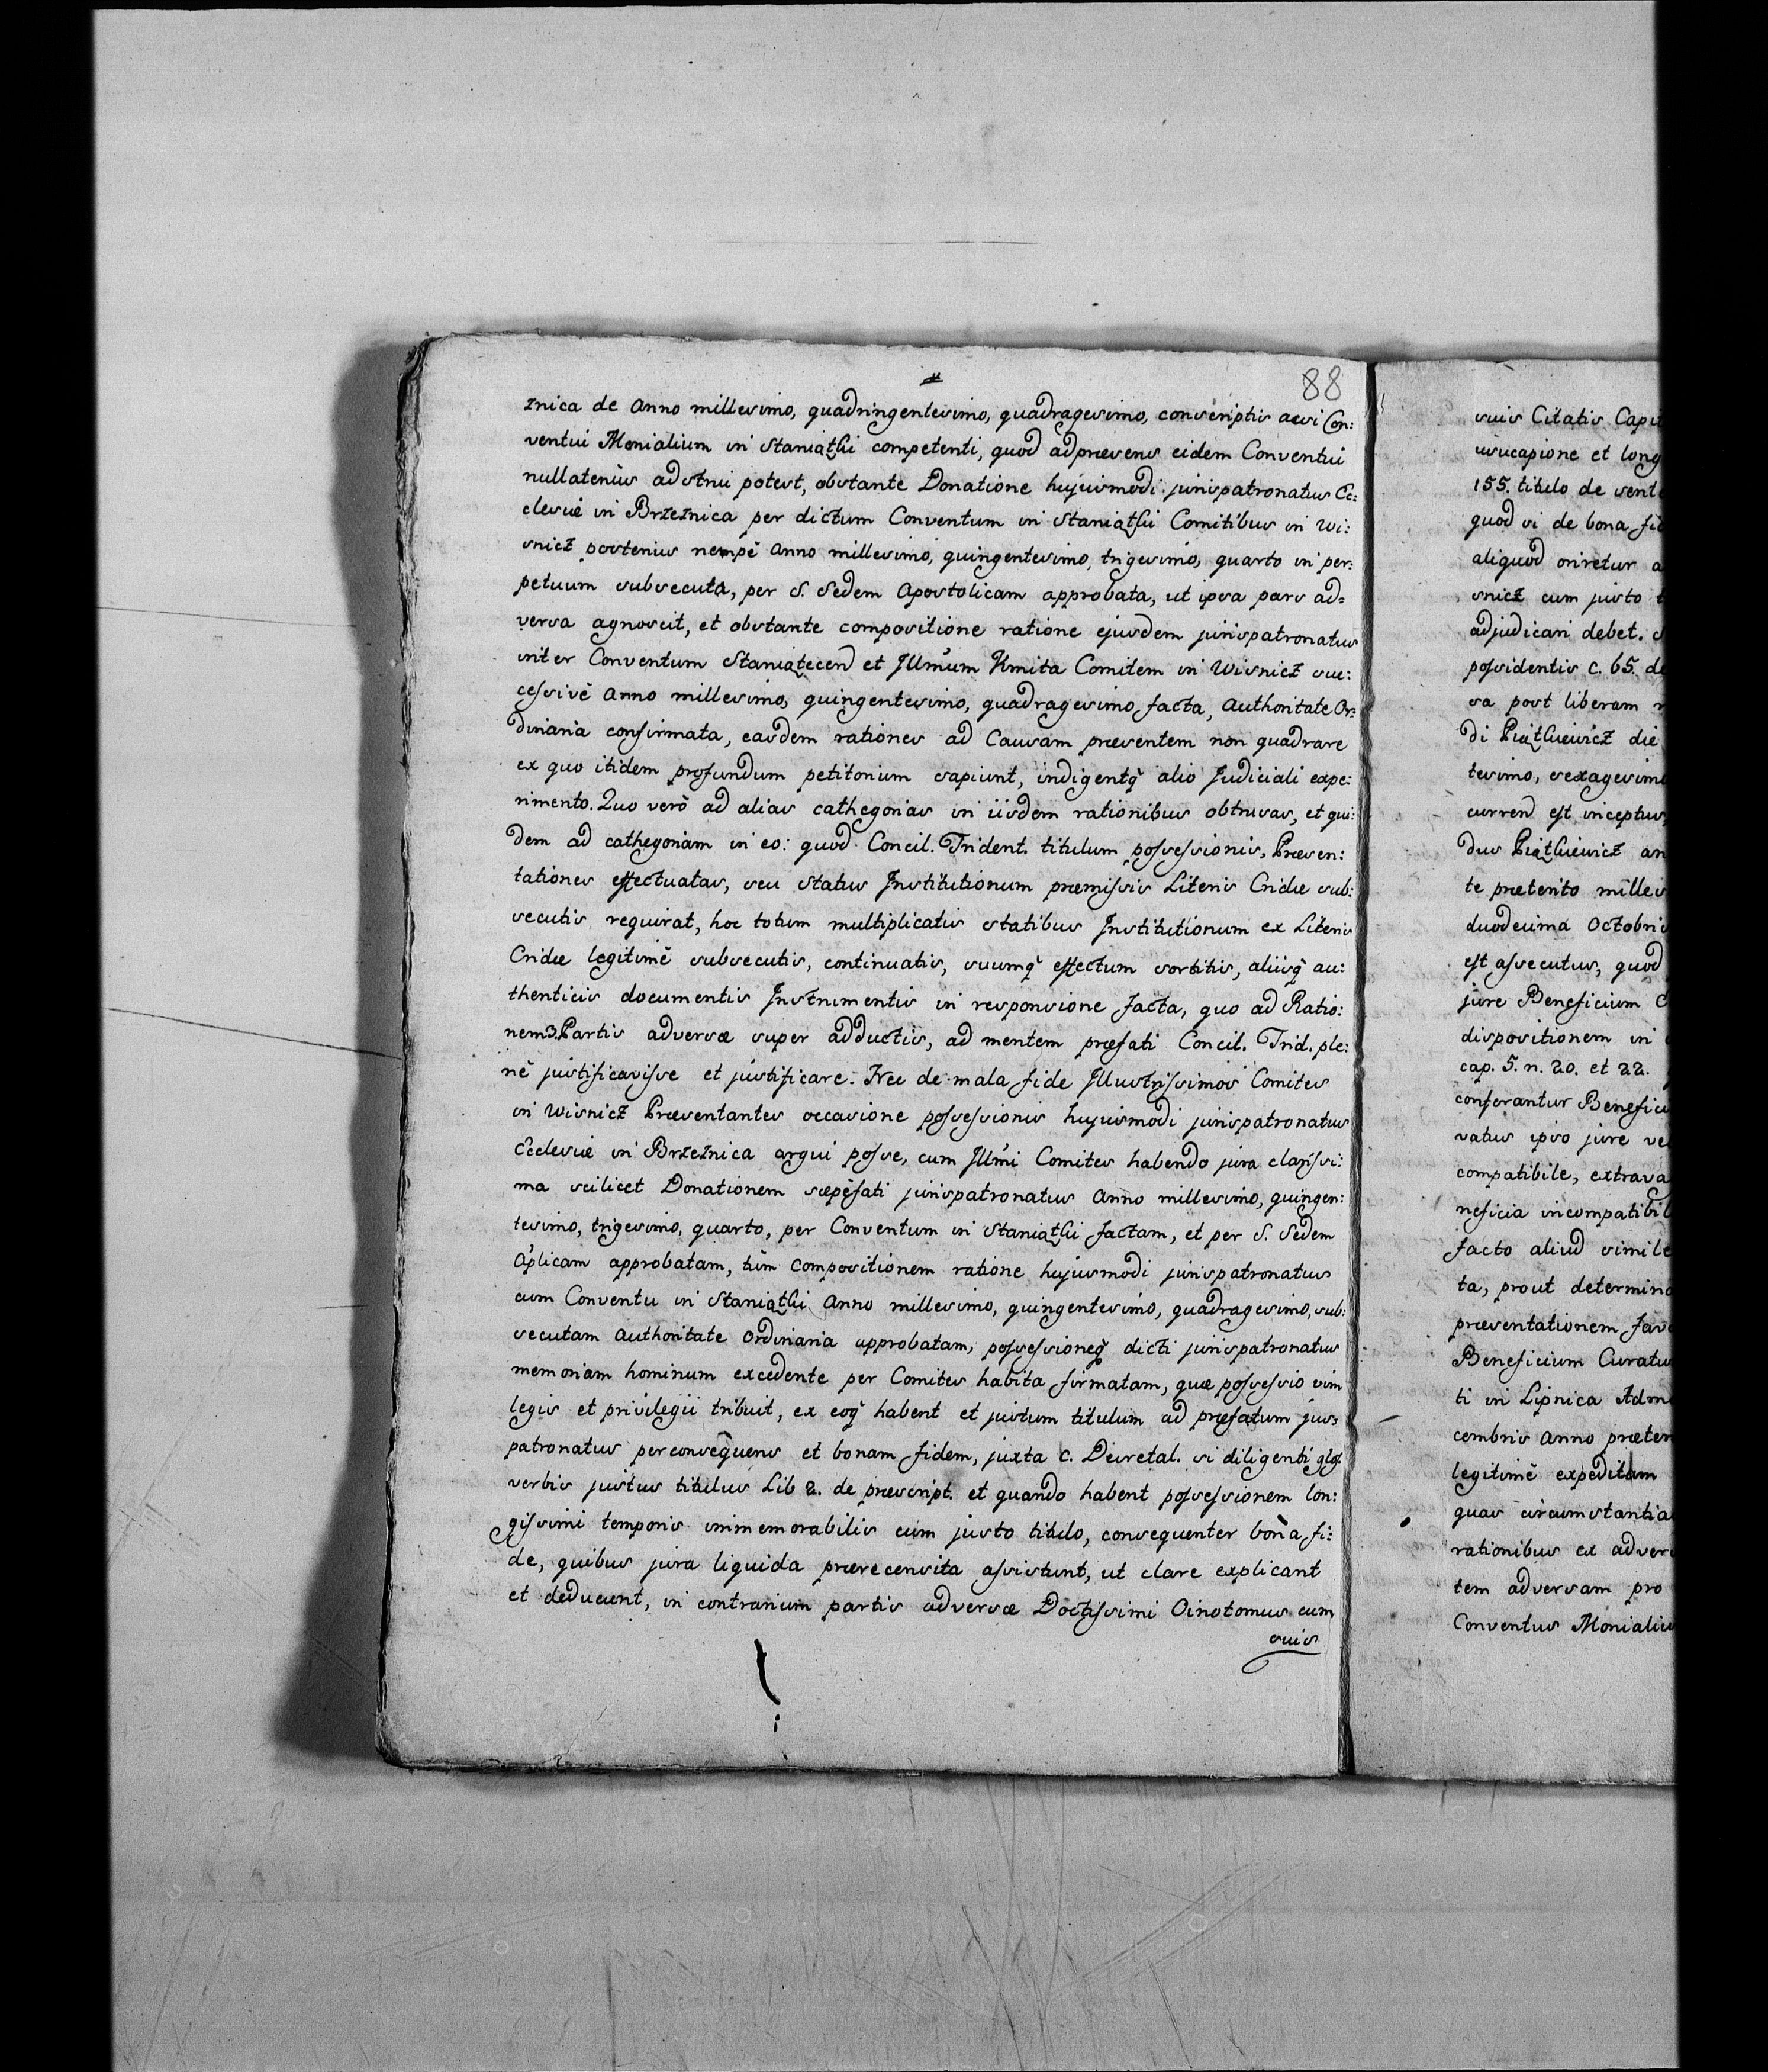 88
znica de Anno millesimo, quadringentesimo, quadragesimo, conscriptis acsi Con:
ventui Monialium in Staniątki competenti, quod adpræsens eidem Conventui
nullatenus adstrui potest, obstante Donatione hujusmodi jurispatronatus Ec:
clesiæ in Brzeźnica per dictum Conventum in Staniątki Comitibus in Wi:
snicz postenius nempè Anno millesimo, quingentesimo, trigesimo, quarto in per:
petuum subsecuta, per S. Sedem Apostolicam approbata, ut ipsa pars ad=
versa agnoscit, et obstante compositione ratione ejusdem jurispatronatus
inter Conventum Staniątecen et Jllmum Kmita Comitem in Wisnicz suc:
cessivè Anno millesimo, quingentesimo, quadragesimo facta, Authoritate Or:
dinaria confirmata, easdem rationes ad Causam præsentem non quadrare
ex quo itidem profundum petitorium sapiunt, indigentq alio Judiciali expe:
rimento. Quo verò ad alias cathegorias in iisdem rationibus obtrusas, et qui:
dem ad cathegoriam in eo: quod Concil. Trident. titulum possessionis, Præsen:
tationes effectuatas, seu status Institutionum præmissis Literis Cridæ sub:
secutis requirat, hoc totum multiplicatis statibus Institutionum ex Literis
Cridæ legitimè subsecutis, continuatis, suumq effectum sortitis, aliisq au:
thenticis documentis Instrumentis in responsione facta, quo ad Ratio:
nem 3. Partis adversæ super adductis, ad mentem præfati Concil. Trid. ple:
nè justificavisse et justificare. Nec de mala fide Jllustrissimos Comites
in Wisnicz Præsentantes occasione possessionis hujusmodi jurispatronatus
Ecclesiæ in Brzeźnica argui posse, cum Jllmi Comites habendo jura clarissi:
ma scilicet Donationem sæpèfati jurispatronatus Anno millesimo, quingen:
tesimo, trigesimo, quarto, per Conventum in Staniątki factam, et per S. Sedem
Aplicam approbatam, tùm Compositionem ratione hujusmodi jurispatronatus
cum Conventu in Staniątki Anno millesimo, quingentesimo, quadragesimo, sub:
secutam Authoritate Ordinaria approbatam, possessioneq dicti jurispatronatus
memoriam hominum excedente per Comites habita firmatam, quæ possessio vim
legis et privilegii tribuit, ex eoq habent et justum titulum ad præfatum jus=
patronatus perconsequens et bonam fidem, juxta c. Decretal. si diligenti
verbis justus titulus Lib 2. de præscript. et quando habent possessionem lon:
gissimi temporis immemorabilis cum justo titulo, consequenter bona fi:
de, quibus jura liquida prærecensita assistunt, ut clare explicant
et deducunt, in contrarium partis adversæ Doctissimi Oinotomus cum
suis
suis Citatis
usucapione et
155. titulo de
quod si de bona
aliquod oriretur
snicz cum justo
adjudicari debet.
possidentis c. 65.
sa post liberam
di Piątkiewicz die
tesimo,
curren est inceptus,
dus Piątkiewicz
te præterito
duodecima
est assecutus, quod
jure Beneficium
dispositionem in
cap. 5. n. 20. et 22.
conferantur
vatus ipso jure
compatibile,
neficia
facto aliud
ta, prout
præsentationem
Beneficium
ti in Lipnica
cembris Anno
legitimè expeditam
quas
rationibus ex
tem adversam pro
Conventus